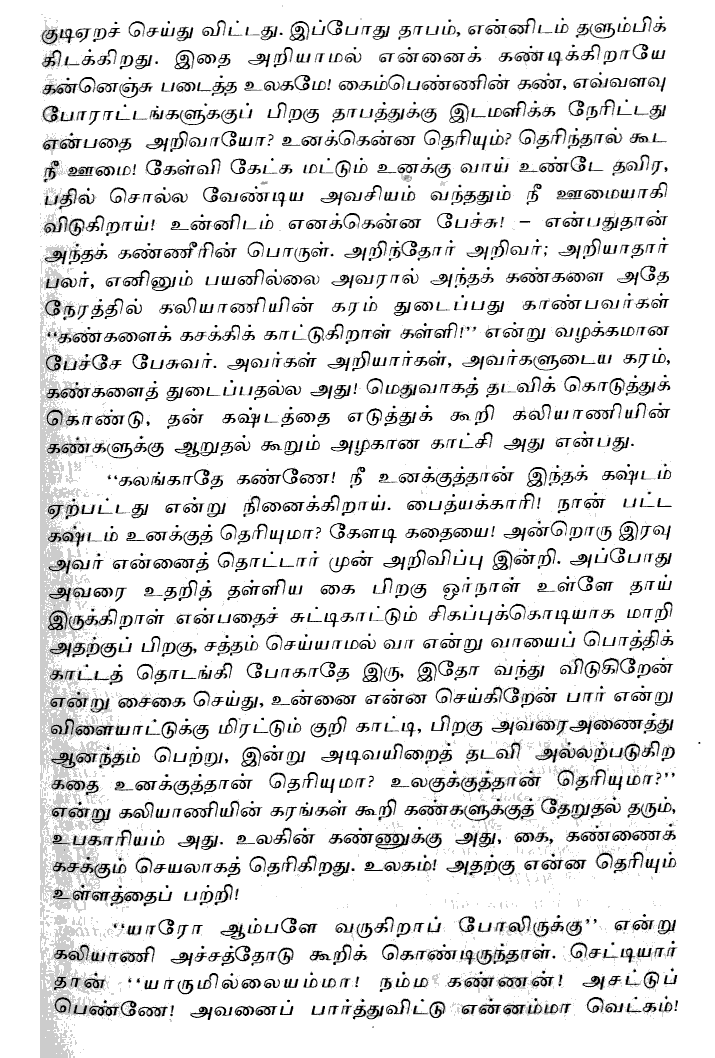 குடிஏறச் செய்து விட்டது. இப்போது தாபம், என்னிடம் தளும்பிக்
கிடக்கிறது. இதை அறியாமல் என்னைக் கண்டிக்கிறாயே
கன்னெஞ்சு படைத்த உலகமே! கைம்பெண்ணின் கண், எவ்வளவு
போராட்டங்களுக்குப் பிறகு தாபத்துக்கு இடமளிக்க நேரிட்டது
என்பதை அறிவாயோ? உனக்கென்ன தெரியும்? தெரிந்தால் கூட
நீ ஊமை! கேள்வி கேட்க மட்டும் உனக்கு வாய் உண்டே தவிர,
பதில் சொல்ல வேண்டிய அவசியம் வந்ததும் நீ ஊமையாகி
விடுகிறாய்! உன்னிடம் எனக்கென்ன பேச்சு! – என்பதுதான்
அந்தக் கண்ணீரின் பொருள். அறிந்தோர் அறிவர்; அறியாதார்
பலர், எனினும் பயனில்லை அவரால் அந்தக் கண்களை அதே
நேரத்தில் கலியாணியின் கரம் துடைப்பது காண்பவர்கள்
“கண்களைக் கசக்கிக் காட்டுகிறாள் கள்ளி!” என்று வழக்கமான
பேச்சே பேசுவர். அவர்கள் அறியார்கள், அவர்களுடைய கரம்,
கண்களைத் துடைப்பதல்ல அது! மெதுவாகத் தடவிக் கொடுத்துக்
கொண்டு, தன் கஷ்டத்தை எடுத்துக் கூறி கலியாணியின்
கண்களுக்கு ஆறுதல் கூறும் அழகான காட்சி அது என்பது.
“கலங்காதே கண்ணே! நீ உனக்குத்தான் இந்தக் கஷ்டம்
ஏற்பட்டது என்று நினைக்கிறாய். பைத்யக்காரி! நான் பட்ட
கஷ்டம் உனக்குத் தெரியுமா? கேளடி கதையை! அன்றொரு இரவு
அவர் என்னைத் தொட்டார் முன் அறிவிப்பு இன்றி. அப்போது
அவரை உதறித் தள்ளிய கை பிறகு ஓர்நாள் உள்ளே தாய்
இருக்கிறாள் என்பதைச் சுட்டிகாட்டும் சிகப்புக்கொடியாக மாறி
அதற்குப் பிறகு, சத்தம் செய்யாமல் வா என்று வாயைப் பொத்திக்
காட்டத் தொடங்கி போகாதே இரு, இதோ வந்து விடுகிறேன்
என்று சைகை செய்து, உன்னை என்ன செய்கிறேன் பார் என்று
விளையாட்டுக்கு மிரட்டும் குறி காட்டி, பிறகு அவரைஅணைத்து
ஆனந்தம் பெற்று, இன்று அடிவயிறைத் தடவி அல்லற்படுகிற
கதை உனக்குத்தான் தெரியுமா? உலகுக்குத்தான் தெரியுமா?”
என்று கலியாணியின் கரங்கள் கூறி கண்களுக்குத் தேறுதல் தரும்,
உபகாரியம் அது. உலகின் கண்ணுக்கு அது, கை, கண்ணைக்
கசக்கும் செயலாகத் தெரிகிறது. உலகம்! அதற்கு என்ன தெரியும்
உள்ளத்தைப் பற்றி!
“யாரோ ஆம்பளே வருகிறாப் போலிருக்கு” என்று
கலியாணி அச்சத்தோடு கூறிக் கொண்டிருந்தாள். செட்டியார்
தான் “யாருமில்லையம்மா! நம்ம கண்ணன்! அசட்டுப்
பெண்ணே! அவனைப் பார்த்துவிட்டு என்னம்மா வெட்கம்!